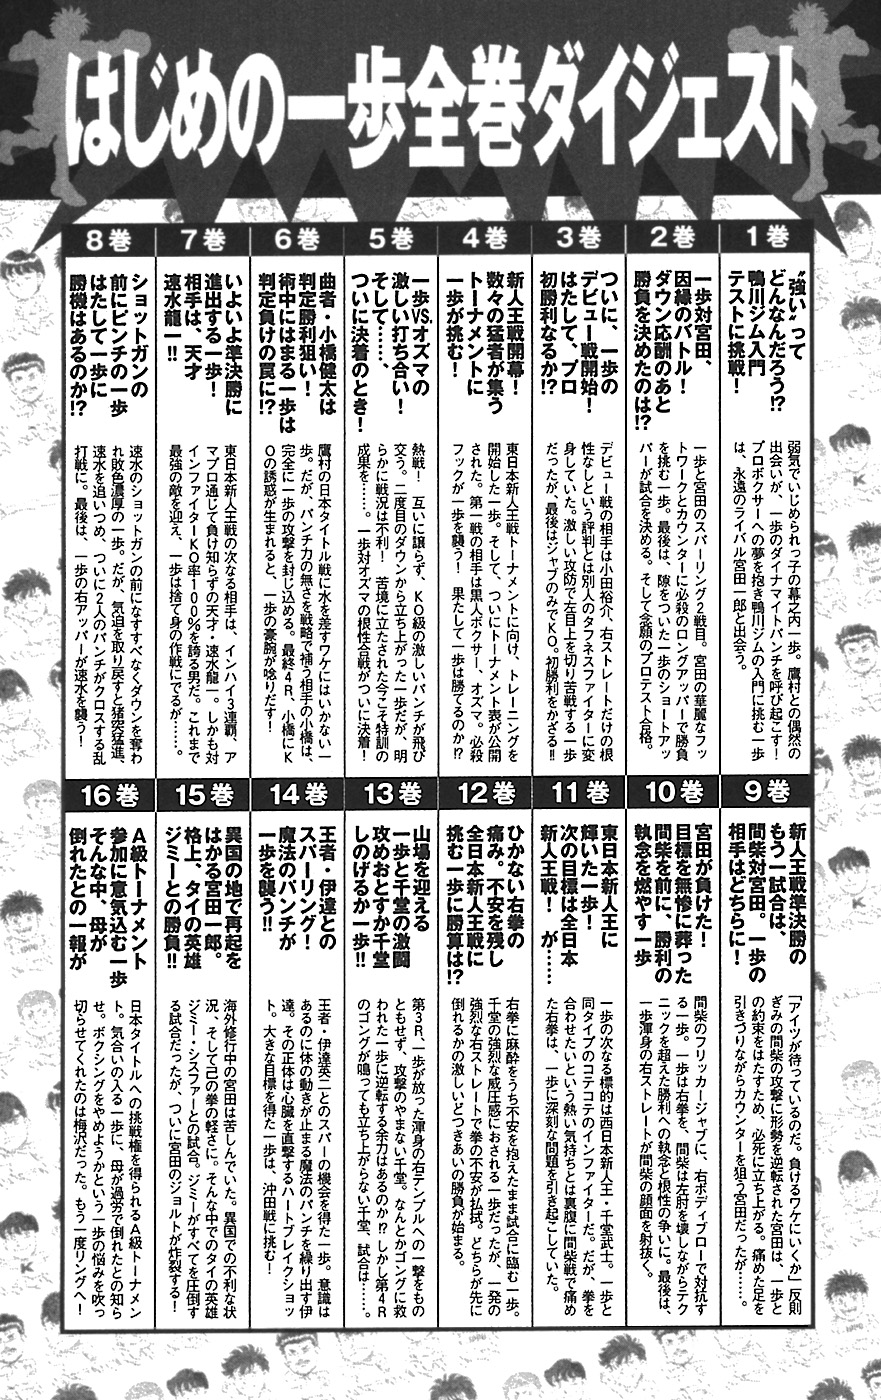 はじめの一歩全巻ダイジェスト
1巻
〝強い〟って
どんなんだろう!?
鴨川ジム入門
テストに挑戦！
弱気でいじめられっ子の幕之内一歩。鷹村との偶然の
出会いが、一歩のダイナマイトパンチを呼び起こす！
プロボクサーへの夢を抱き鴨川ジムの入門に挑む一歩
は、永遠のライバル宮田一郎と出会う。
2巻
一歩対宮田、
因縁のバトル！
ダウン応酬のあと
勝負を決めたのは!?
一歩と宮田のスパーリング2戦目。宮田の華麗なフッ
トワークとカウンターに必殺のロングアッパーで勝負
を挑む一歩。最後は、隙をついた一歩のショートアッ
パーが試合を決める。そして念願のプロテスト合格。
3巻
ついに、一歩の
デビュー戦開始！
はたして、プロ
初勝利なるか!?
デビュー戦の相手は小田裕介、右ストレートだけの根
性なしという評判とは別人のタフネスファイターに変
身していた。激しい攻防で左目上を切り苦戦する一歩
だったが、最後はジャブのみでKO。初勝利をかざる!!
4巻
新人王戦開幕！
数々の猛者が集う
トーナメントに
一歩が挑む！
東日本新人王戦トーナメントに向け、トレーニングを
開始した一歩。そして、ついにトーナメント表が公開
された。第一戦の相手は黒人ボクサー、オズマ。必殺
フックが一歩を襲う！　果たして一歩は勝てるのか!?
5巻
一歩VS.オズマの
激しい打ち合い！
そして……、
ついに決着のとき！
熱戦！　互いに譲らず、KO級の激しいパンチが飛び
交う。二度目のダウンから立ち上がった一歩だが、明
らかに戦況は不利！　苦境に立たされた今こそ特訓の
成果を……。一歩対オズマの根性合戦がついに決着！
6巻
曲者・小橋健太は
判定勝利狙い！
術中にはまる一歩は
判定負けの罠に!?
鷹村の日本タイトル戦に水を差すワケにはいかない一
歩。だが、パンチ力の無さを戦略で補う相手の小橋は、
完全に一歩の攻撃を封じ込める。最終4R、小橋にK
Oの誘惑が生まれると、一歩の豪腕が唸りだす！
7巻
いよいよ準決勝に
進出する一歩！
相手は、天才
速水龍一!!
東日本新人王戦の次なる相手は、インハイ3連覇、ア
マプロ通じて負け知らずの天才・速水龍一。しかも対
インファイターKO率100％を誇る男だ。これまで
最強の敵を迎え、一歩は捨て身の作戦にでるが……。
8巻
ショットガンの
前にピンチの一歩
はたして一歩に
勝機はあるのか!?
速水のショットガンの前になすすべなくダウンを奪わ
れ敗色濃厚の一歩。だが、気迫を取り戻すと猪突猛進、
速水を追いつめ、ついに2人のパンチがクロスする乱
打戦に。最後は、一歩の右アッパーが速水を襲う！
9巻
新人王戦準決勝の
もう一試合は、
間柴対宮田。一歩の
相手はどちらに！
「アイツが待っているのだ。負けるワケにいくか」反則
ぎみの間柴の攻撃に形勢を逆転された宮田は、一歩と
の約束をはたすため、必死に立ち上がる。痛めた足を
引きづりながらカウンターを狙う宮田だったが……。
10巻
宮田が負けた！
目標を無惨に葬った
間柴を前に、勝利の
執念を燃やす一歩
間柴のフリッカージャブに、右ボディブローで対抗す
る一歩。一歩は右拳を、間柴は左肘を壊しながらテク
ニックを超えた勝利への執念と根性の争いに。最後は、
一歩渾身の右ストレートが間柴の顔面を射抜く。
11巻
東日本新人王に
輝いた一歩！
次の目標は全日本
新人王戦！　が……
一歩の次なる標的は西日本新人王・千堂武士。一歩と
同タイプのコテコテのインファイターだ。だが、拳を
合わせたいという熱い気持ちとは裏腹に間柴戦で痛め
た右拳は、一歩に深刻な問題を引き起こしていた。
12巻
ひかない右拳の
痛み。不安を残し
全日本新人王戦に
挑む一歩に勝算は!?
右拳に麻酔をうち不安を抱えたまま試合に臨む一歩。
千堂の強烈な威圧感におされる一歩だったが、一発の
強烈な右ストレートで拳の不安が払拭。どちらが先に
倒れるかの激しいどつきあいの勝負が始まる。
13巻
山場を迎える
一歩と千堂の激闘
攻めおとすか千堂
しのげるか一歩!!
第3R、一歩が放った渾身の右テンプルへの一撃をもの
ともせず、攻撃のやまない千堂。なんとかゴングに救
われた一歩に逆転する余力はあるのか!?　しかし第4R
のゴングが鳴っても立ち上がらない千堂、試合は……。
14巻
王者・伊達との
スパーリング！
魔法のパンチが
一歩を襲う!!
王者・伊達英二とのスパーの機会を得た一歩。意識は
あるのに体の動きが止まる魔法のパンチを繰り出す伊
達。その正体は心臓を直撃するハートブレイクショッ
ト。大きな目標を得た一歩は、沖田戦に挑む！
15巻
異国の地で再起を
はかる宮田一郎。
格上、タイの英雄
ジミーとの勝負!!
海外修行中の宮田は苦しんでいた。異国での不利な状
況、そして己の拳の軽さに。そんな中でのタイの英雄
ジミー・シスファーとの試合。ジミーがすべてを圧倒す
る試合だったが、ついに宮田のジョルトが炸裂する！
16巻
A級トーナメント
参加に意気込む一歩
そんな中、母が
倒れたとの一報が
日本タイトルへの挑戦権を得られるA級トーナメン
ト。気合いの入る一歩に、母が過労で倒れたとの知ら
せ。ボクシングをやめようかという一歩の悩みを吹っ
切らせてくれたのは梅沢だった。もう一度リングへ！